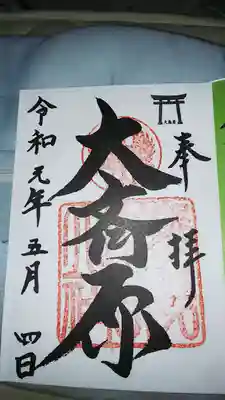 奉拝
大斎原
令和元年五月四日